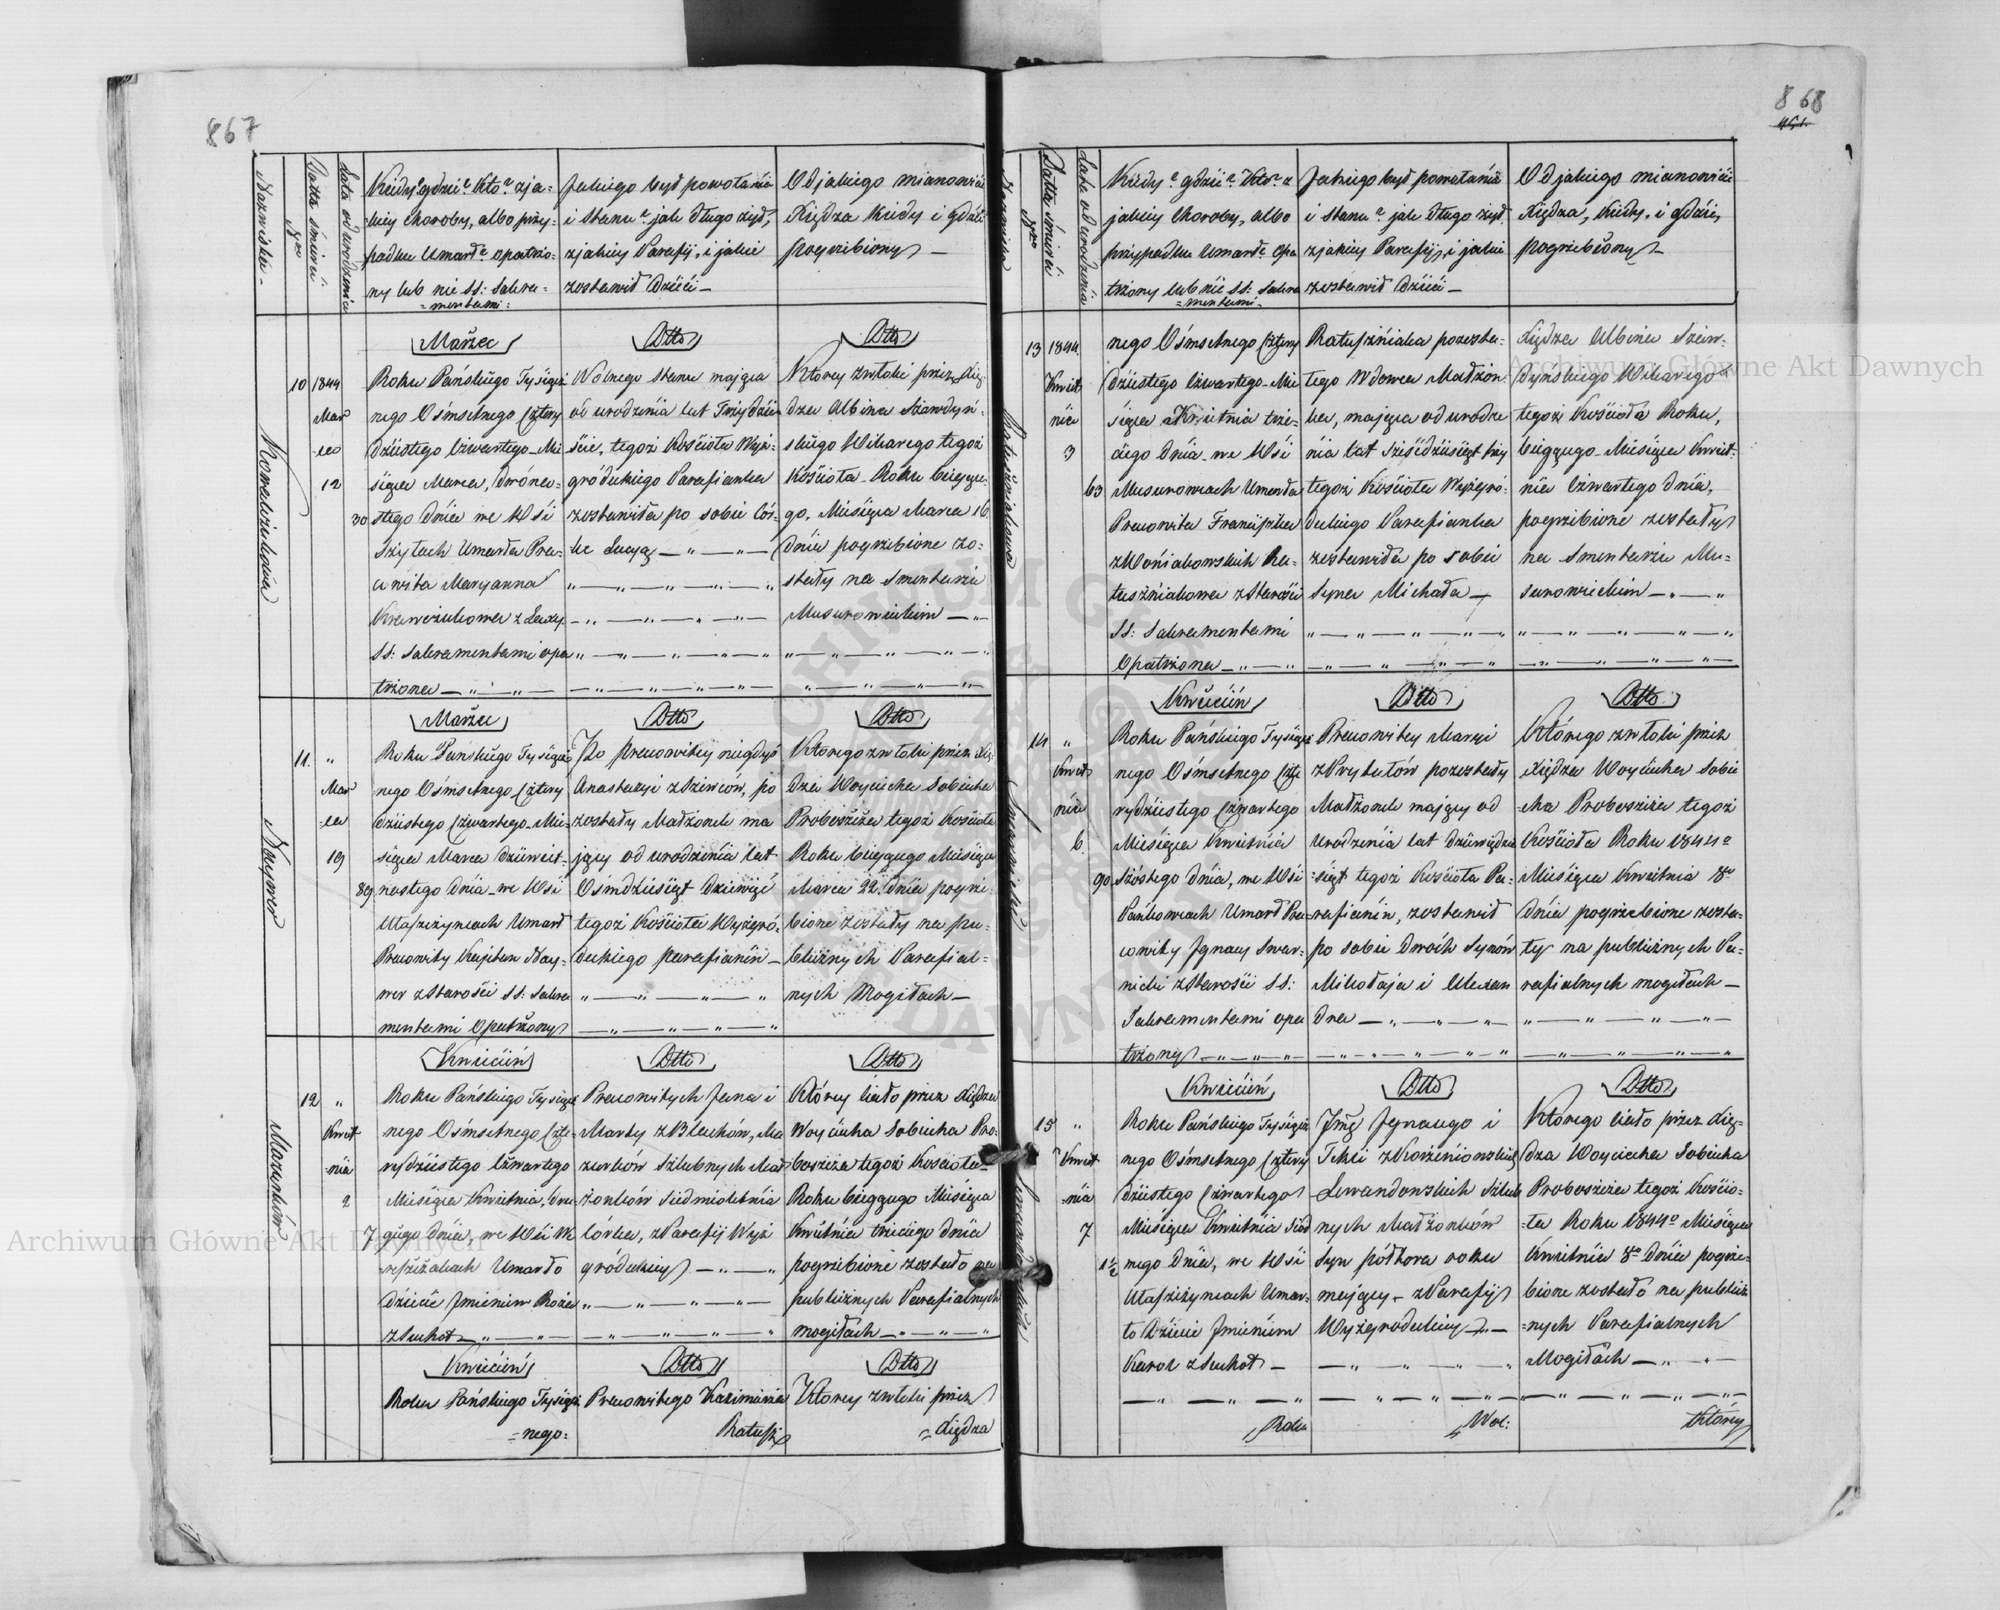 867
Nazwiska
Nro
Datta śmierci
Lata od urodzenia
Kiedy? gdzie? Kto? z ja=
=kiey Choroby, albo przy=
padku Umarł? opatrzo=
ny lub nie SS: Sakra=
=mentami:
Jakiego był powołania
i Stanu? jak długo żył,
z jakiey Parafij, i jakie
zostawił Dzieci —
Od jakiego mianowicie
Xiędza Kiedy i gdzie
pogrzebiony —
10
1844
Mar
=ca
12
30
Marzec
Roku Pańskiego Tysiącz
nego Ośmsetnego Cztery
dziestego Czwartego Mie
siąca Marca, dwóna=
stego dnia we Wsi
Szytach Umarła Pra=
cowita Maryanna
SS: Sakramentami opa
trzona
Dtto
Wolnego Stanu mająca
od urodzenia lat Trzydzie
ście, tegoż Kościoła Wyż=
gródeckiego Parafianka
zostawiła po sobie Cór=
kę Łucyą
Dtto
Którey zwłoki przez Xię
dza Albina Szawdyń=
skiego Wikarego tegoż
Kościoła Roku bieżące=
go, Miesiąca Marca 16
dnia pogrzebione zo=
stały na Smentarzu
Musurowieckim
11.
Mar
=ca
19
89
Naywer
Marzec
Roku Pańskiego Tysiącz
nego Ośmsetnego Cztery
dziestego Czwartego Mie=
siąca Marca dziewięt=
nastego dnia we Wsi
Umarł
Pracowity Kajetan Nay=
wer z Starości SS: Sakra
mentami Opatrzony
Dtto
Po Pracowitey niegdyś
Anastazyi z Dziewców, po
zostały Małżonek ma
jący od urodzenia lat
Ośmdziesiąt Dziewięć
tegoż Kościoła Wyżgró=
deckiego parafianin
Dtto
Którego zwłoki przez Xię
dza Woyciecha Sobicha
Proboszcza tegoż Kościoła
Roku bieżącego Miesiąca
Marca 22. dnia pogrze=
bione zostały na pu=
blicznych Parafial=
nych Mogiłach —
12
Kwiet
=nia
2
7
Mazurków
Kwiecień
Roku Pańskiego Tysiącz
nego Ośmsetnego Czte=
rydziestego Czwartego
Miesiąca Kwietnia, dru
giego dnia, we Wsi We
Umarło
dziecię Jmieniem Róża
z Suchot
Dtto
Pracowitych Jana i
Marty z Blechów, Ma
zurków Szlubnych Mał
żonków Siedmioletnia
Córka, z Parafij Wyż
gródeckiey
Dtto
Którey ciało przez Xiędza
Woyciecha Sobicha Pro=
boszcza tegoż Kościoła
Roku bieżącego Miesiąca
Kwietnia trzeciego dnia
pogrzebione zostało na
publicznych Parafialnych
mogiłach
Kwiecień
Roku Pańskiego Tysiącz
=nego=
Dtto
Pracowitego Kazimierza
Ratusz
Dtto
Którey zwłoki przez
=Xiędza
868
Nazwiska
Nro
Datta śmierci
Lata od urodzenia
Kiedy? gdzie? Kto? z
jakiey Choroby, albo
przypadku Umarł? Opa
trzony lub nie SS: Sakra
=mentami
Jakiego był powołania
i Stanu? jak długo żył
z jakiey Parafij, i jakie
zostawił Dzieci —
Od jakiego mianowicie
Xiędza, Kiedy, i gdzie,
pogrzebiony —
13
1844.
Kwiet
nia
3
63
Ratuszniakowa
nego Ośmsetnego Cztery
dziestego Czwartego Mie
siąca Kwietnia trze=
ciego dnia we Wsi
Musurowcach Umarła
Pracowita Franciszka
tuszniakowa z Starości
SS: Sakramentami
Opatrzona
Ratuszniaka pozosta=
łego Wdowca Małżon=
ka, mająca od urodze
nia lat Sześćdziesiąt trzy
tegoż Kościoła Wyżgró=
deckiego Parafianka
zostawiła po sobie
Syna Michała
Xiędza Albina Szaw=
dyńskiego Wikarego
tegoż Kościoła Roku,
bieżącego Miesiąca Kwiet=
nia Czwartego dnia,
pogrzebione zostały
na Smentarzu Mu=
surowieckim
14
Kwiet
nia
6.
90
Kwiecień
Roku Pańskiego Tysiącz
nego Ośmsetnego Czte
rydziestego Czwartego
Miesiąca Kwietnia
Szóstego dnia, we Wsi
Pańkowcach Umarł Pra=
cowity Jgnacy Swar=
nicki z Starości SS:
Sakramentami opa
trzony
Dtto
Pracowitey Maryi
pozostały
Małżonek mający od
Urodzenia lat dziewiędzie
=siąt tegoż Kościoła Pa=
rafianin, zostawił
po sobie dwóch Synów
Mikołaja i Alexan
dra
Dtto
Którego zwłoki przez
Xiędza Woyciecha Sobi
cha Proboszcza tegoż
Kościoła Roku 1844o
Miesiąca Kwietnia 8o
dnia pogrzebione zosta=
ły na publicznych Pa=
rafialnych mogiłach —
15
Kwiet
=nia
7
1½
Kwiecień
Roku Pańskiego Tysiącz
nego Ośmsetnego Cztery
dziestego Czwartego
Miesiąca Kwietnia Siód
mego dnia, we Wsi
Umar=
ło Dziecie Jmieniem
Karol z Suchot —
Roku
Dtto
Jgnacego i
Tekli z Korzeniowskich
Lewandowskich Szlub
nych Małżonków
Syn półtora roku
mający z Parafij
Wyżgrodeckiey
Wol:
Dtto
Którego ciało przez Xię=
dza Woyciecha Sobicha
Proboszcza tegoż Kościo=
ła Roku 1844o Miesiąca
Kwietnia 8o dnia pogrze=
bione zostało na publicz
=nych Parafialnych
Mogiłach
Którey
Archiwum Główne Akt Dawnych
Archiwum Główne Akt Dawnych
Archiwum Główne Akt Dawnych